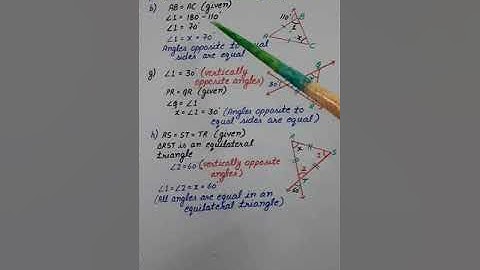 b) AB = AC (given)
∠1 = 180 - 110°
∠1 = 70°
∠1 = x = 70°
Angles opposite to equal
sides are equal
110°
B
1
x
A
C
g) ∠1 = 30° (vertically
opposite angles)
PR = QR (given)
∠Q = ∠1
x = ∠1 = 30° (Angles opposite to
equal sides are equal)
30°
h) RS = ST = TR (given)
△RST is an equilateral
triangle
∠2 = 60° (vertically opposite
angles)
∠1 = ∠2 = x = 60°
(All angles are equal in an
equilateral triangle)
R
x
S
1
2
T
60°